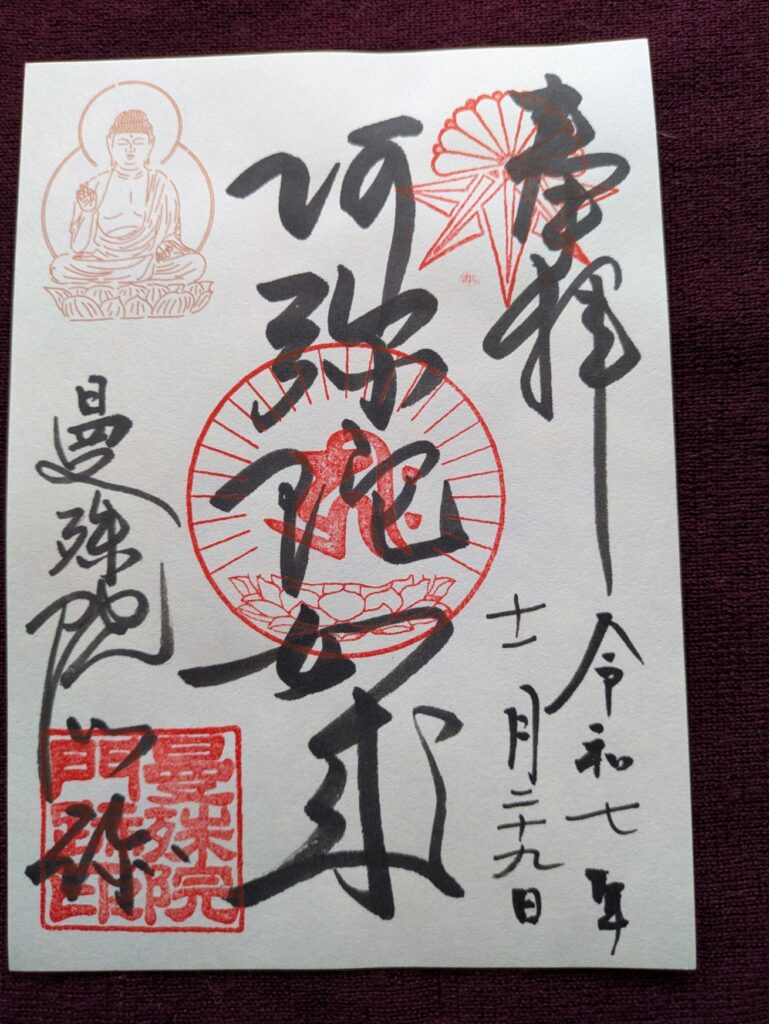 奉拝
令和七年
十一月二十九日
阿弥陀如来
曼殊院門跡
曼殊院
門跡印